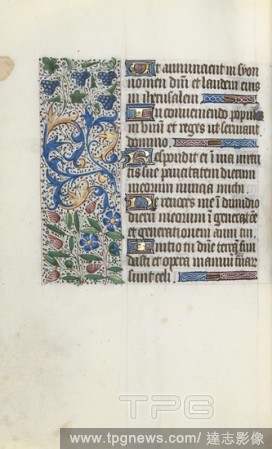 Ut annuncient in syon
nomen dnı et laudem eius
in iherusalem
In conveniendo populos
in unum et reges ut serviant
domino
Respondit ei in via virtu
tis sue paucitatem dierum
meorum nuncia michi
Ne revoces me in dimidio
dierum meorum in generatōe
et generationem anni tui
Initio tu dñe terrā fun
dasti et opera manuū tuarū
sunt celi
TPG
www.tpgnews.com / 達志影像